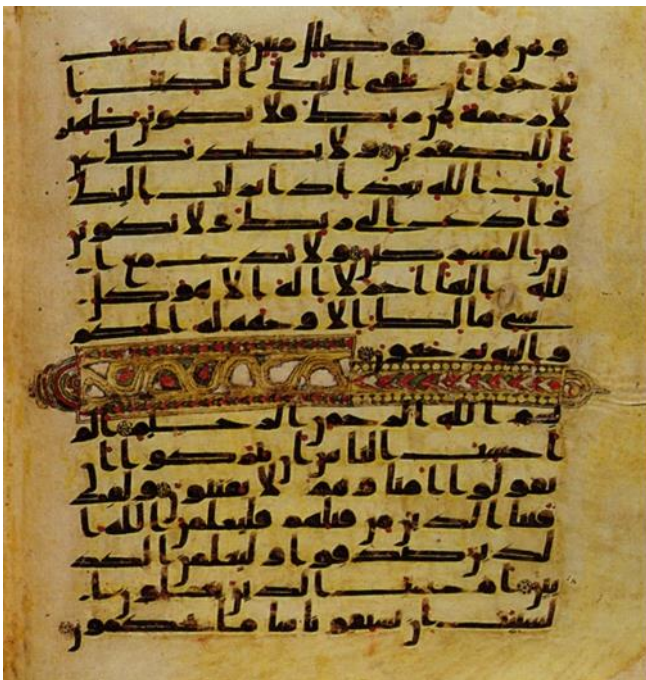 ومن هو في ضلل مبين وما كنت
ترجوا ان يلقى اليك الكتب ا
لا رحمة من ربك فلا تكونن ظهير
ا للكفرين ولا يصدنك عن
ايت الله بعد اذ انزلت اليك
وادع الى ربك ولا تكونن
من المشركين ولا تدع مع ا
لله الها اخر لا اله الا هو كل
شي هالك الا وجهه له الحكم
واليه ترجعون
بسم الله الرحمن الرحيم الم
احسب الناس ان يتركوا ان
يقولوا امنا وهم لا يفتنون ولقد
فتنا الذين من قبلهم فليعلمن الله ا
لذين صدقوا وليعلمن الكذ
بين ام حسب الذين يعملون ا
لسيت ان يسبقونا سا ما يحكمون